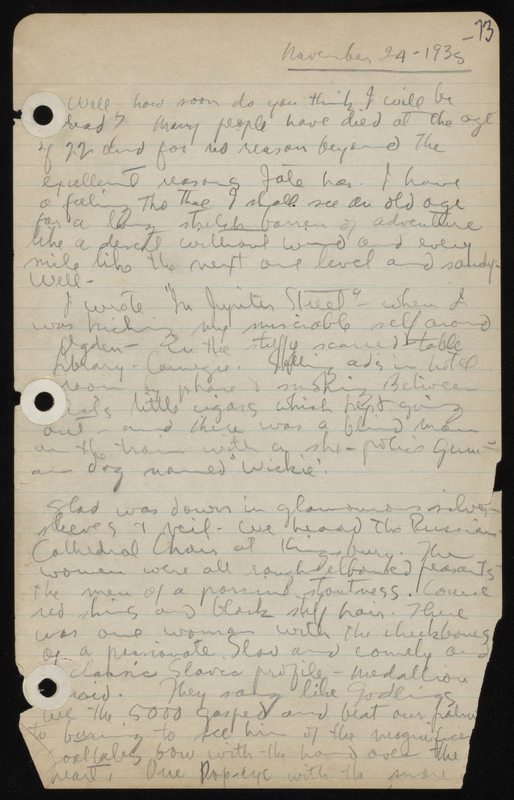 -73
November 24-1935
Well how soon do you think I will be
dead? Many people have died at the age
of 22 and for no reason beyond the
excellent reasons Fate has. I have
a feeling tho that I shall see an old age
for a long stretch barren of adventure
like a desert without wind and every
mile like the next one level and sandy-
Well-
I wrote "In Jupiter Street" - when I
was kicking my miserable self around
Ogden - In the stuffy scarred-table
library - Carnegie. Selling ads in hotel
room by phone & smoking Between
little cigars which kept going
out - and there was a blind man
on the train with a police Germ-
an dog named 'Wickie'.
Glad was down in glamourous silver
sleeves & veil - We heard the Russian
Cathedral Choir at Kingsbury. The
women were all rough elbowed peasants
the men of a stoutness. Course
red skins and black stiff hair. There
was one woman with the cheekbones
of a passionate Slav and comely and
classic Slavic profile - medallion
They sang like Godlings
We the 5000 gasped and beat our palms
to burning to see him of the magnificent
bow with the hand over the
heart. One Pop-eye with the more